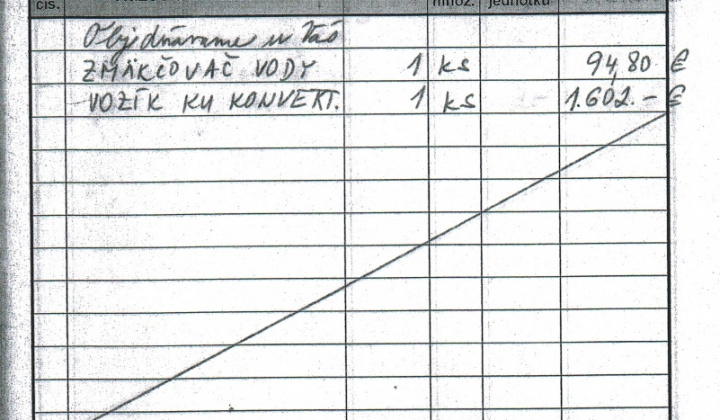 čís. množ. jednotku
Objednávame u Vás
ZMÄKČOVAČ VODY 1 ks 94,80 €
VOZÍK KU KONVEKT. 1 ks 1.602.- €